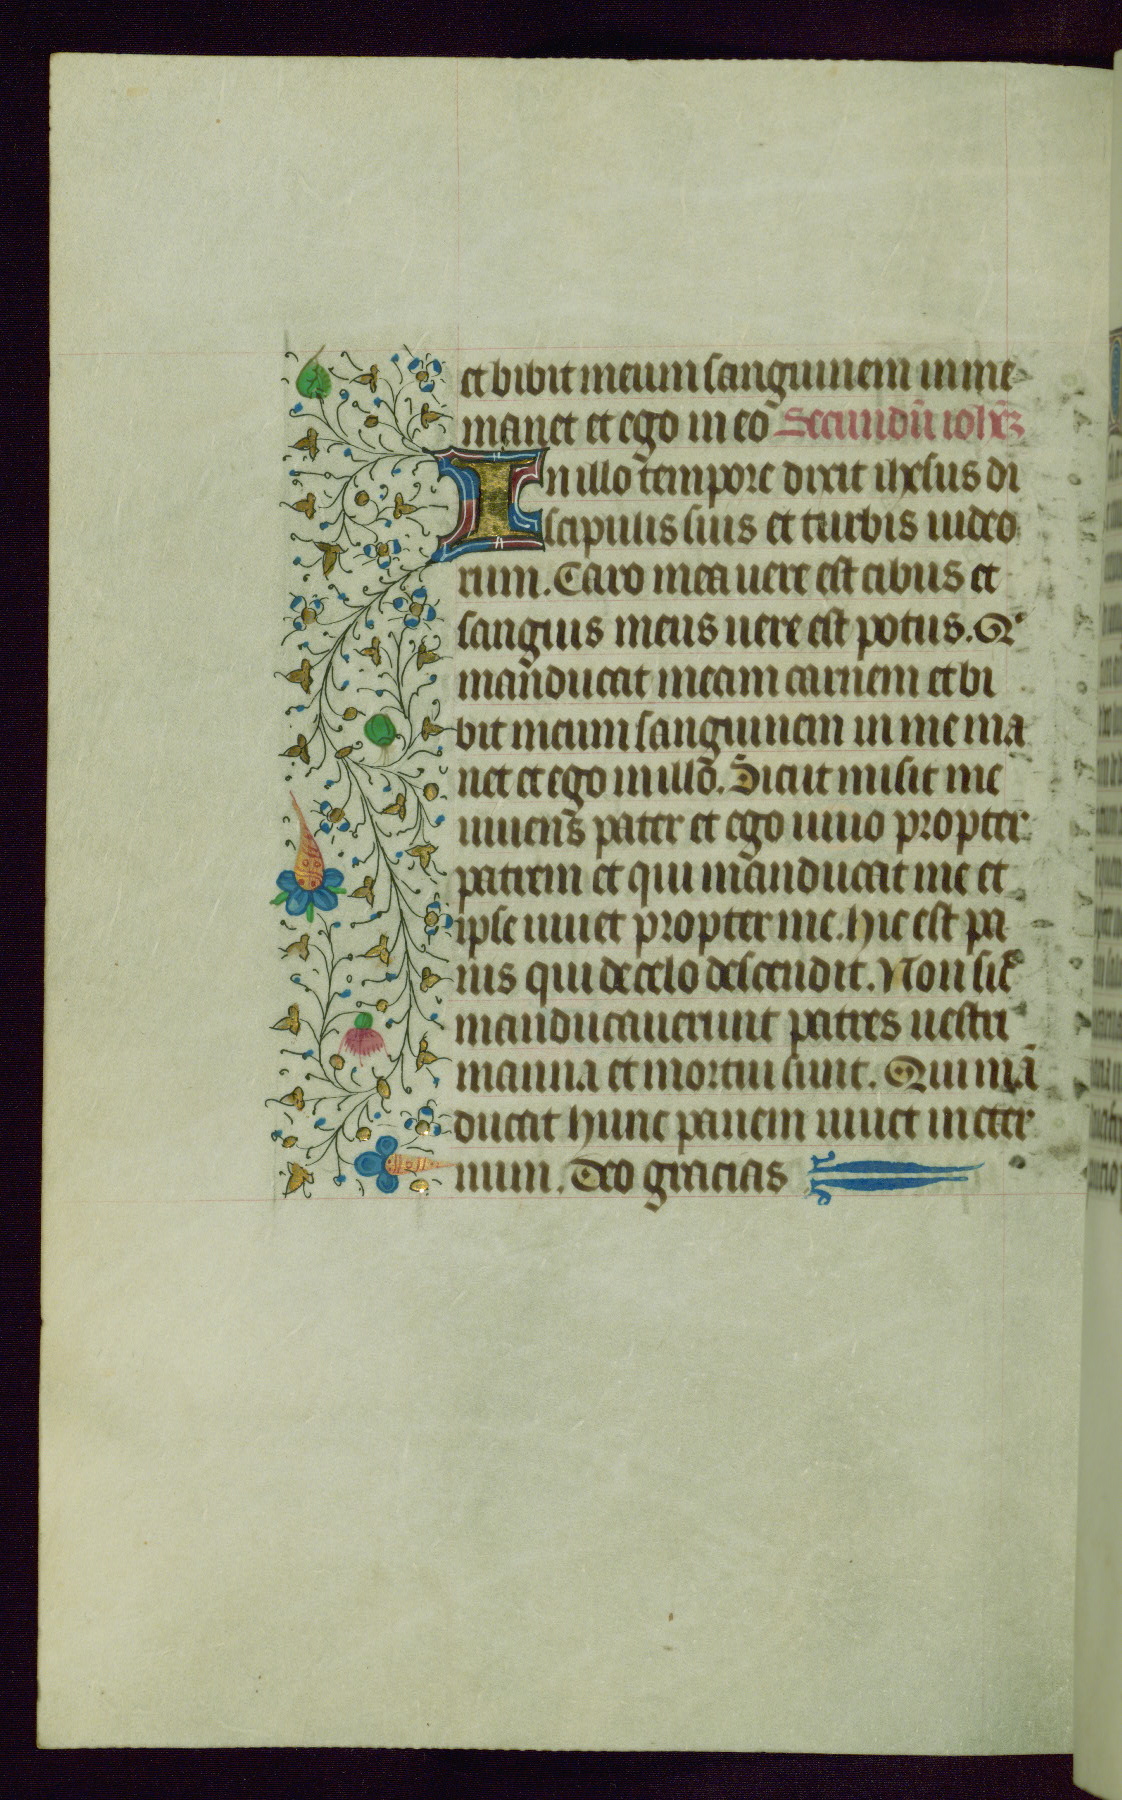 et bibit meum sanguinem in me
manet et ego in eo Secundū ioh̄ez
In illo tempore dixit ihesus di
scipulis suis et turbis iudeo
rum. Caro mea uere est cibus et
sanguis meus uere est potus. Qⁱ
manducat meam carnem et bi
bit meum sanguinem in me ma
net et ego in illo. Sicut misit me
uiuens pater et ego uiuo propter
patrem et qui manducat me et
ipse uiuet propter me. hic est pa
nis qui de celo descendit. Non sič
manducauerunt patres uestri
manna et mortui sunt. Qui mā
ducat hunc panem uiuet in eter
num. Deo gracias